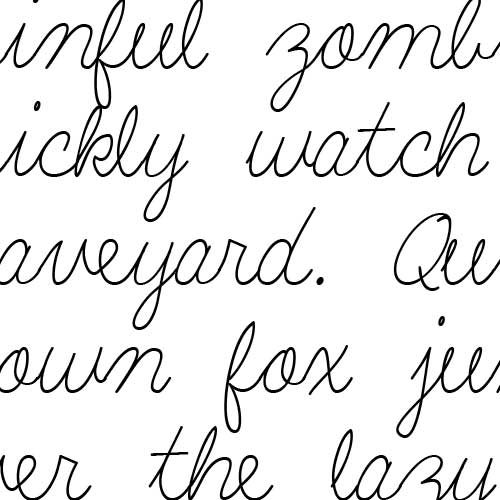 inful zomb
ickly watch
aveyard. Qu
own fox ju
ver the lazy